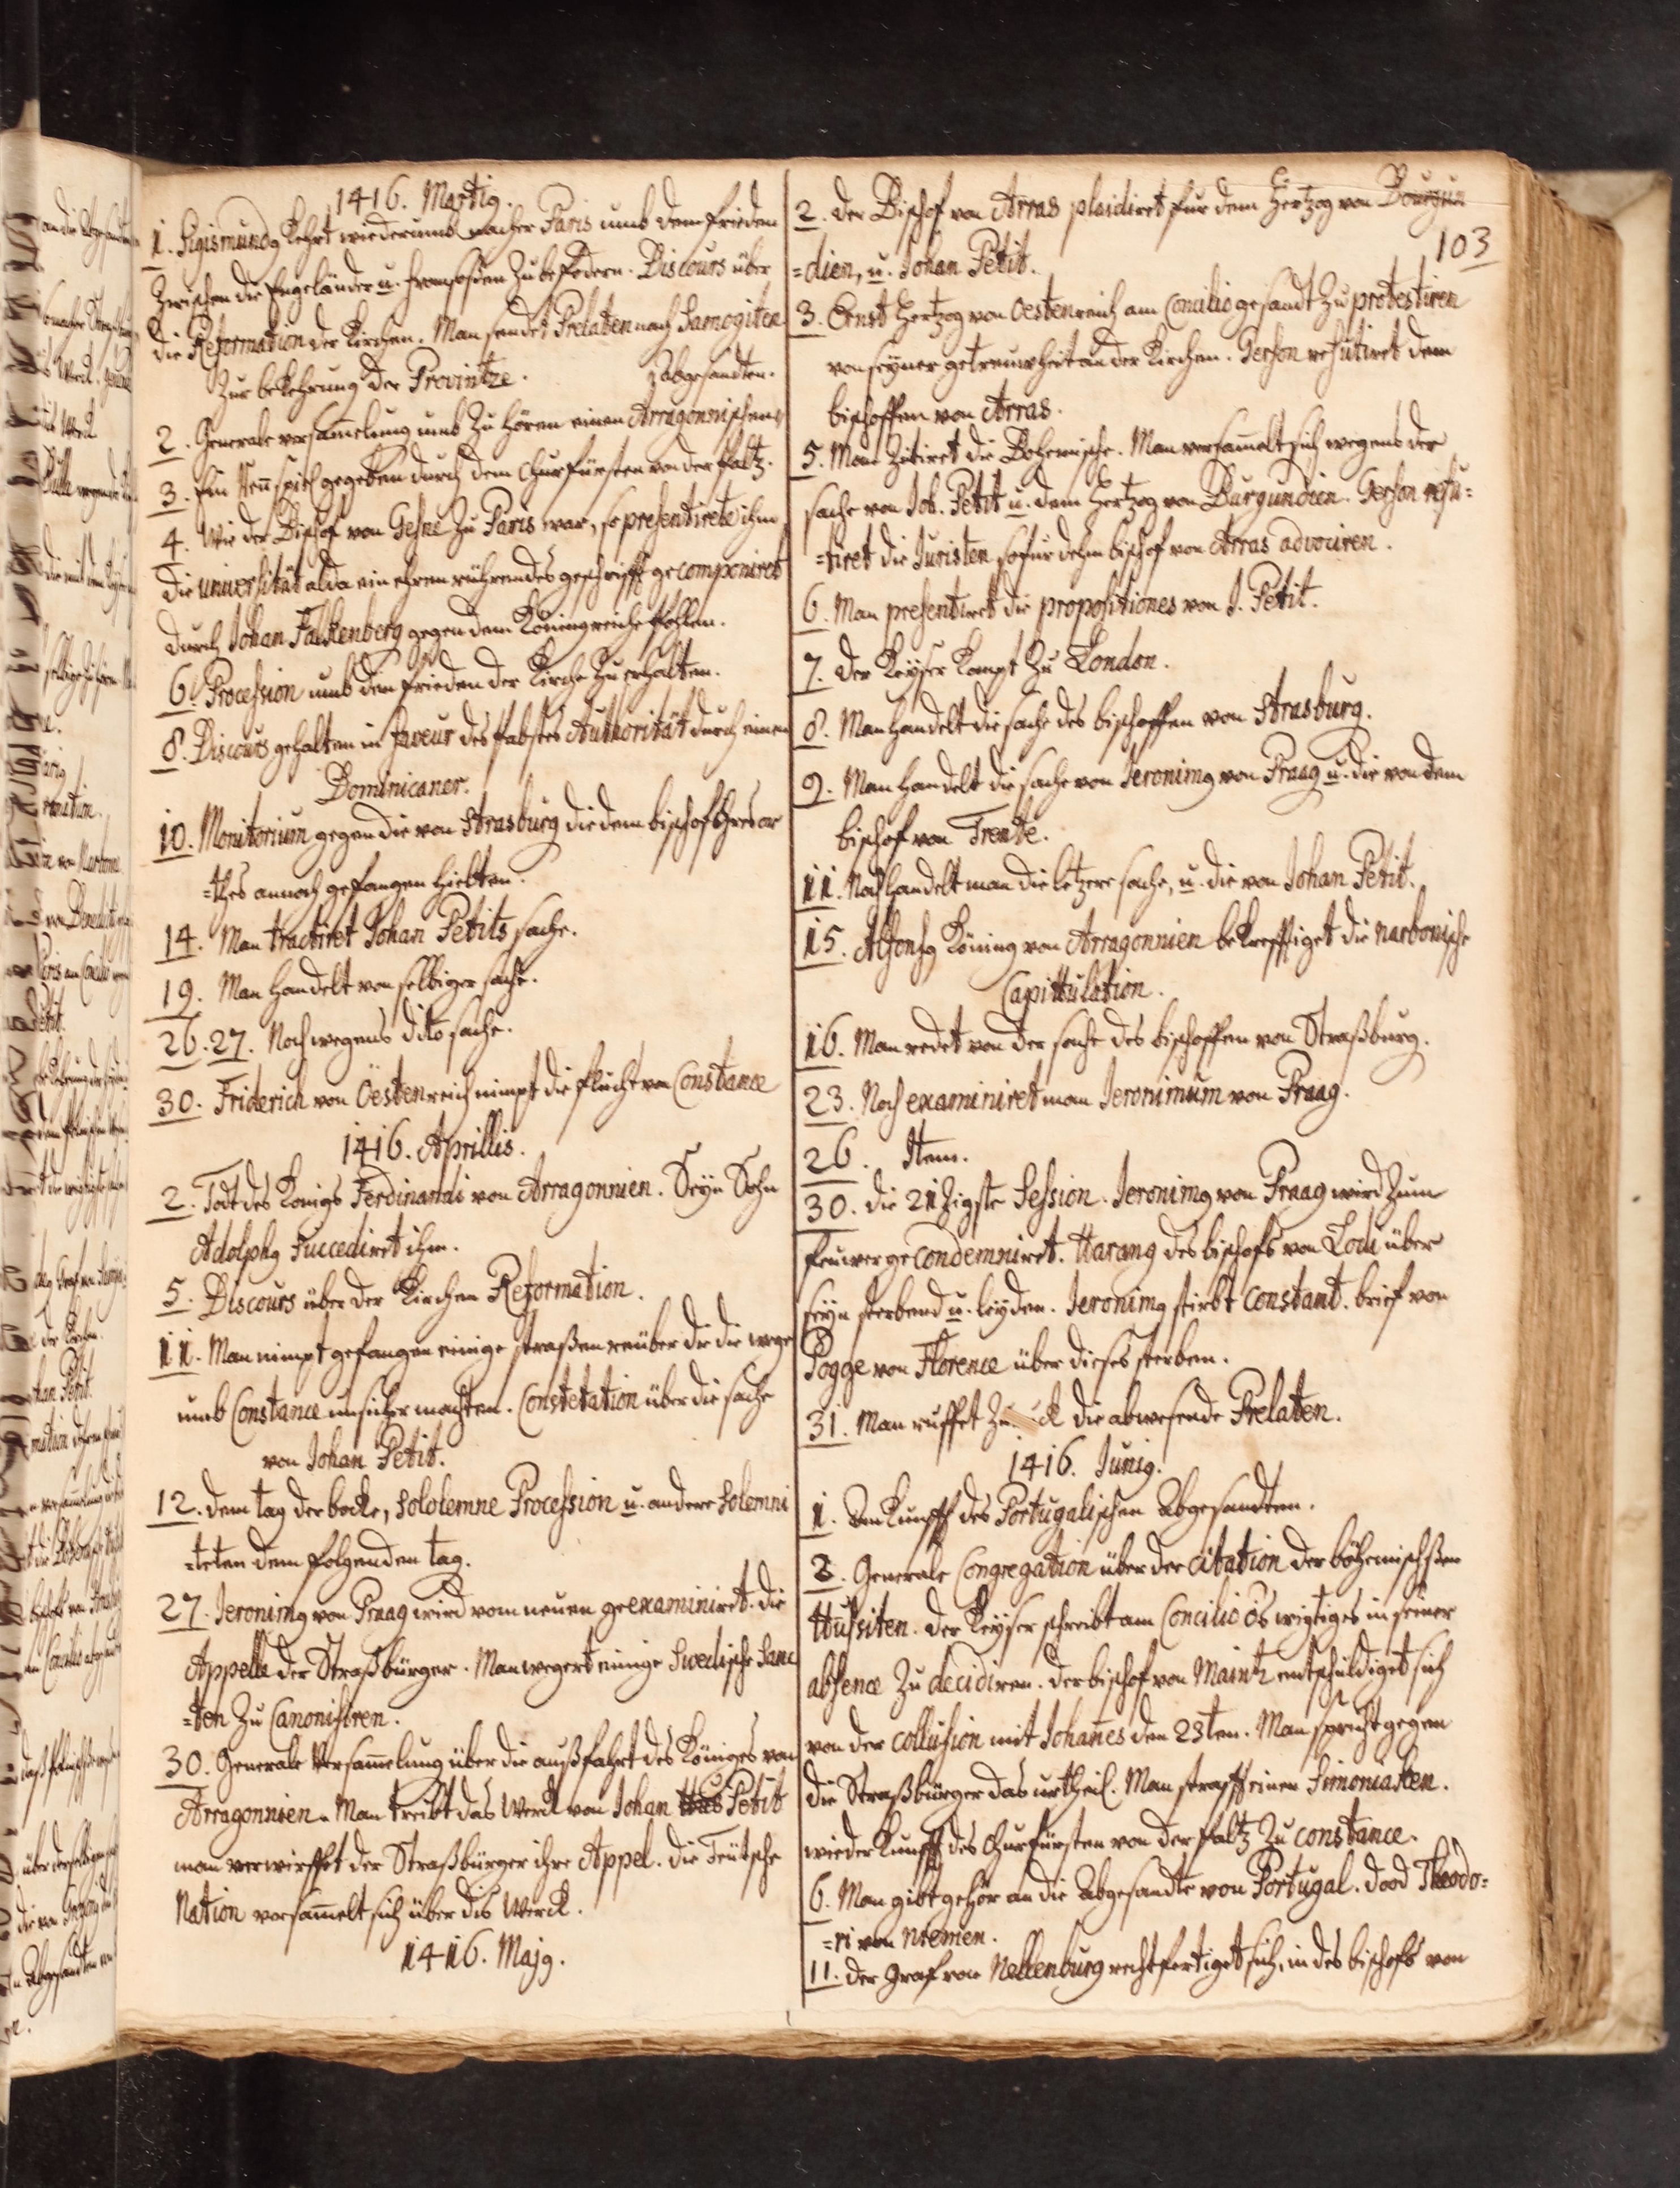 1416. Martiꝯ.
1. Sigismundꝯ kehrt wiederumb nacher Paris umb dem frieden
zwischen die Engeländer u. Fransosen zu befodern. Discours über
die Reformation der Kirchen. Man sendet Prelaten nach Samogiten
zur bekehrung der Provintze. abgesandten.
2. Generale versam̄elung umb zu hören einen Arragonnischen
3. Ein Ren̄spiel gegeben durch dem Churfürsten von der Paltz.
4. Wie der Bischof von Gesne zu Paris war, so presentirete ihm
die universität alda ein ehren rührendes geschrifft gecomponiret
durch Johan Falkenberg gegen dem Köningreiche Pohlen.
6. Procession umb dem frieden der Kirche zu erhalten.
8. Discours gehalten in faveur des Pabstes Authorität durch einen
Dominicaner.
10. Monitorium gegen die von Strasburg die dem bischof Ihres or
=thes annoch gefangen hielten.
14. Man tractiret Johan Petits sache.
19. Man handelt von selbiger sache.
26. 27. Noch wegens dito sache.
30. Friderich von Öestenreich nimpt die flucht von Constance
1416. Aprillis.
2. Todt des Königs Ferdinandi von Arragonnien. Seyn Sohn
Adolphꝯ succediret ihm.
5. Discours über der Kirchen Reformation.
11. Man nimpt gefangen einige straßen reuber die die wege
umb Constance unsicher machten. Constetation über die sache
von Johan Petit.
12. dem tag der bocke, sololemne Procession u. andere solemni
=teten dem folgenden tag.
27. Jeronimꝯ von Praag wird vom neuen geexaminiret. Die
Appelle der Straßbürger. Man wegert einige Swedische Sanc
=ten zu Canonisiren.
30. Generale Versam̄elung über die außfahrt des Köninges von
Arragonnien. Man treibt das Werck von Johan Hus Petit
man verwirffet der Straßbürger ihre Appel. Die Teütsche
Nation versam̄elt sich über dis Werck.
1416. Majꝯ.
2. Der Bischof von Arras plaidiret für dem Hertzog von Bourgun
103
=dien, u. Johan Petit.
3. Ernst Hertzog von Oestenreich am Concilio gesandt zu protestiren
von seyner getreuwheit an der Kirchen. Gerson refutiret dem
bischoffen von Arras.
5. Man Zitiret die Bohemische. Man versam̄elt sich wegens der
sache von Joh. Petit u. dem Hertzog von Burgundien. Gerson refu=
=tiret die Juristen so für dehm bischof von Arras advociren.
6. Man presentiret die propositiones von J. Petit.
7. Der Keyser kompt zu London.
8. Man handelt die sache des bischoffen von Strasburg.
9. Man handelt die sache von Jeronimꝯ von Praag u. die von dem
bischof von Trente.
11. Noch handelt man die letzere sache, u. die von Johan Petit.
15. Alfonsꝯ Köning von Arragonnien bekrefftiget die narbonische
Capittulation.
16. Man redet von der sache des bischoffen von Straßburg.
23. Noch examiniret man Jeronimum von Praag.
26. Item.
30. Die 21zigste Session. Jeronimꝯ von Praag wird zum
feuwer gecondemniret. Harang des bischofs von Lodi über
seyn sterbend u. leyden. Jeronimꝯ stirbt constant. brief von
Pogge von Florence über dieses sterben.
31. Man ruffet zuruck die abwesende Prelaten.
1416. Juniꝯ.
1. Ankunfft des Portugalischen Abgesandten.
2. Generale Congregation über der citation der böhemischßen
Hussiten. Der Keyser schreibt am Concilio wigtiges in seiner
absence zu decidiren. Der bischof von Maintz entschuldiget sich
von der collusion mit Johan̄es dem 23ten. Man spricht gegen
die Straßbürger das urtheil. Man strafft einen Simoniaken.
wieder Kunfft des Churfürsten von der Paltz zu constance.
6. Man gibt gehör an die Abgesandte von Portugal. dood Theodo=
=ri von Niemen.
11. Der Graf von Nellenburg rechtfertiget sich, in des bischofs von